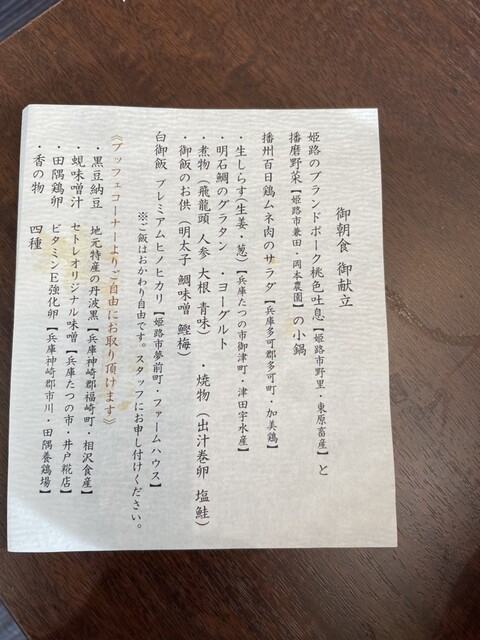 御朝食 御献立
姫路のブランドポーク桃色吐息【姫路市野里・東原畜産】と
播磨野菜【姫路市兼田・岡本農園】の小鍋
播州百日鶏ムネ肉のサラダ【兵庫多可郡多可町・加美鶏】
・生しらす(生姜・葱)【兵庫たつの市御津町・津田宇水産】
・明石鯛のグラタン ・ヨーグルト
・煮物(飛龍頭 人参 大根 青味) ・焼物(出汁巻卵 塩鮭)
・御飯のお供(明太子 鯛味噌 鰹梅)
白御飯 プレミアムヒノヒカリ【姫路市夢前町・ファームハウス】
※ご飯はおかわり自由です。スタッフにお申し付けください。
《ブッフェコーナーよりご自由にお取り頂けます》
・黒豆納豆 地元特産の丹波黒【兵庫神崎郡福崎町・相沢食産】
・蜆味噌汁 セトレオリジナル味噌【兵庫たつの市・井戸糀店】
・田隅鶏卵 ビタミンE強化卵【兵庫神崎郡市川・田隅養鶏場】
・香の物 四種